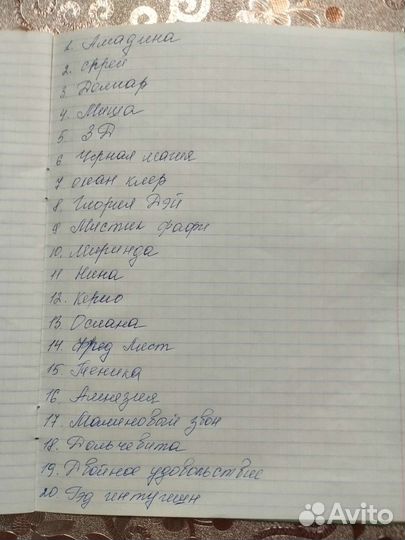 1. Амадина
2. Фрей
3. Долиар
4. Миша
5 3Д
6 Чёрная магия
7 океан клер
8 Глория Дэй
9 Мистик фафи
10. Миринда
11 Нина
12. Керио
13. Осиана
14. Фред Лист
15 Теника
16. Амнезия
17. Малиновый звон
18. Дольчевита
19. Двойное удовольствие
20 Рэд интуишен
Avito